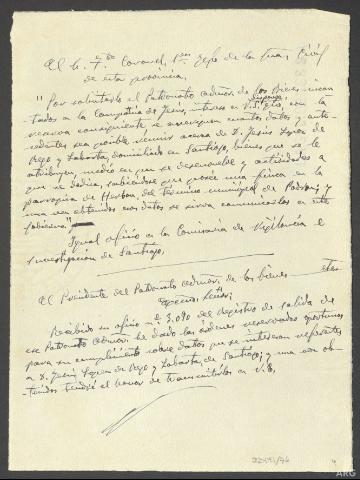 Al Sr. Tte. Coronel, 1er Jefe de la Gua. Civil
de esta provincia.
"Por solicitarlo el Patronato admor. de los bienes incau
tados a la Compañía de Jesús, intereso de V.S. que, con la
reserva consiguiente se averigüen cuantos datos y ante-
cedentes sea posible reunir acerca de D. Jesús
Rego y Labarta, domiciliado en Santiago, bienes que se le
atribuyen, medio en que se desenvuelve y actividades a
que se dedica, sabiéndose que posee una finca en la
parroquia de Herbón, del término municipal de Padrón; y
una vez obtenidos esos datos se sirva comunicarlos en este
Gobierno"
Igual oficio a la Comisaria de Vigilancia e
Investigación de Santiago,
Al Presidente del Patronato admor. de los bienes etc
Excmo Señor:
Recibido su oficio nº 3.090 del registro de salida de
ese Patronato admor. he dado las órdenes reservadas oportunas
para su cumplimiento sobre datos que se interesan referentes
a D. Jesús Rego y Labarta, de Santiago; y una vez ob-
tenidos tendré el honor de transmitirlos a V.E.
4
ARG